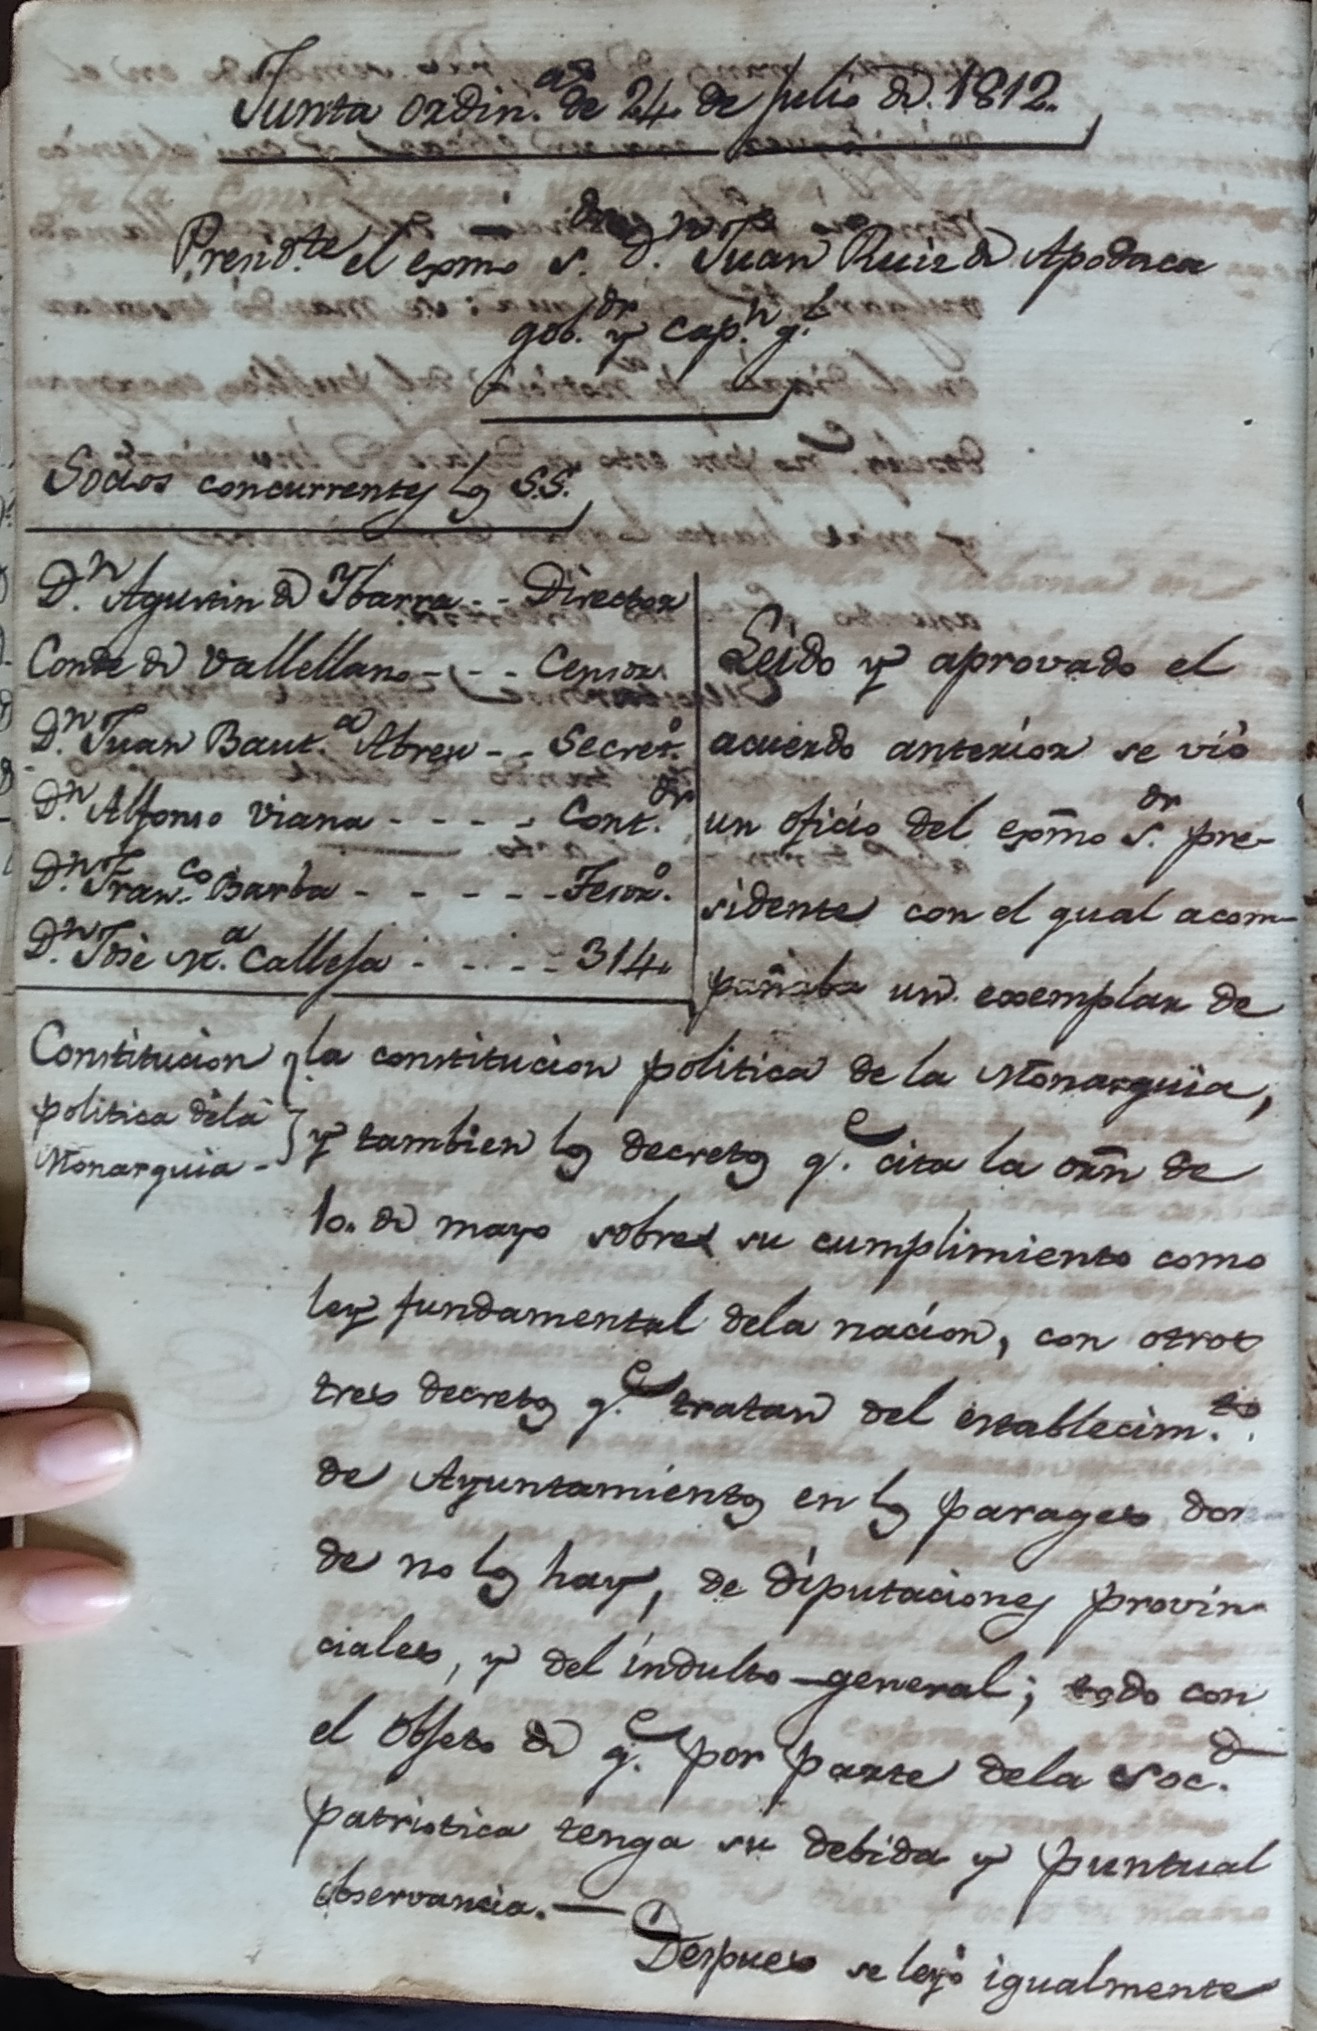 Junta ordin.ª de 24. de Julio de 1812.
Presid.te el exmo s.or d.n Juan Ruiz de Apodaca
gob.dr y cap.n g.l
Socios concurrentes los S.S.
D.n Agustin de Ybarra - - Director
Conde de Vallellano - - - Censor
D.n Juan Baut.ª Abreu - - Secret.º
D.n Alfonso Viana - - - - Cont.dr
D.n Fran.co Barba - - - - - Tesor.º
D.n José M.ª Callesa - - - - 314.
Leido y aprovado el
acuerdo anterior se vió
un oficio del exmo s.or pre-
sidente con el qual acom-
pañaba un exemplar de
Constitucion
politica de la
Monarquia -
la constitucion politica de la Monarquia,
y tambien los decretos q.e cita la orn de
10. de mayo sobre su cumplimiento como
ley fundamental dela nacion, con otros
tres decretos q.e tratan del establecim.to
de Ayuntamientos en los parages don
de no los hay, de diputaciones provin-
ciales, y del indulto general; todo con
el objeto de q.e por parte dela Soc.d
patriotica tenga su debida y puntual
observancia. —
Despues se leyó igualmente